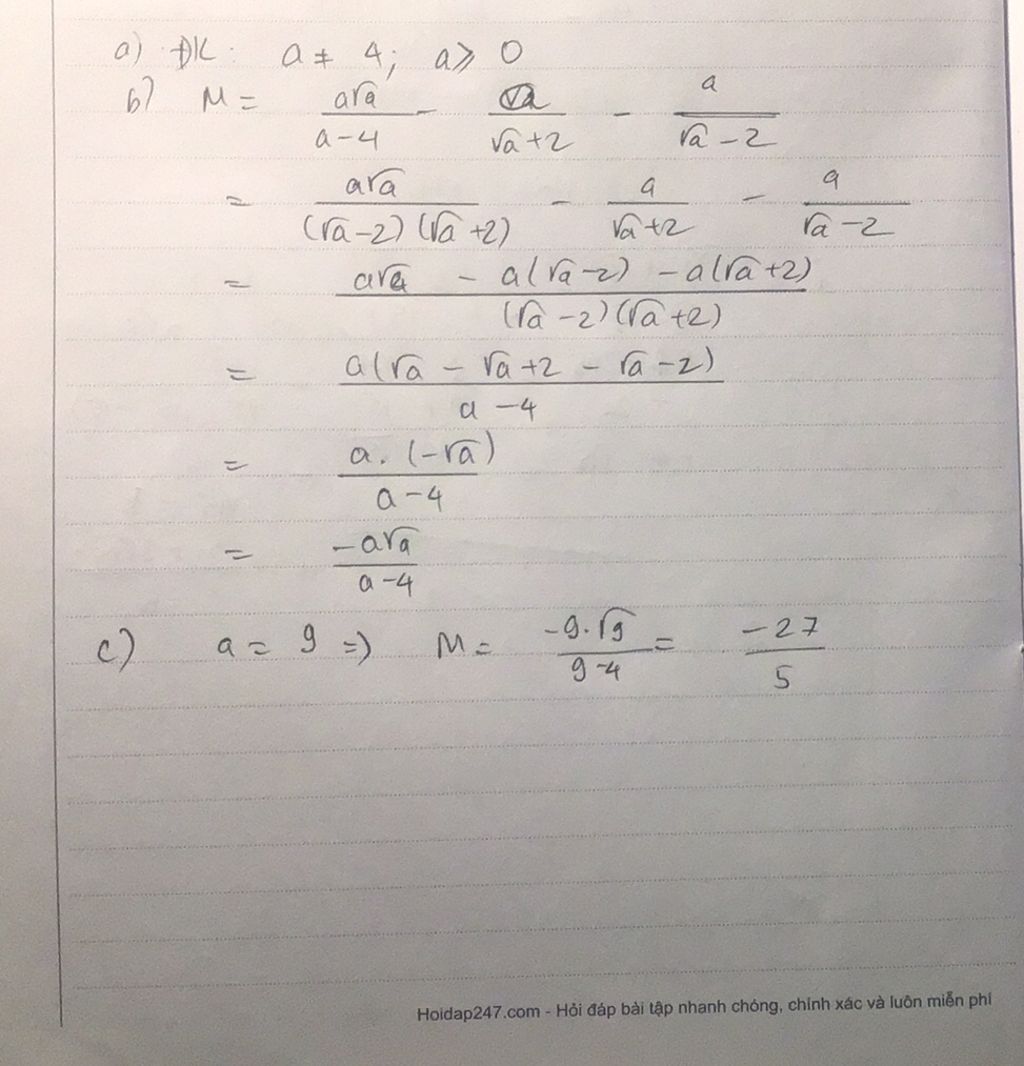 a) ĐK: a ≠ 4; a ≥ 0
b) M = a√a/(a-4) - a/(√a+2) - a/(√a-2)
= a√a/((√a-2)(√a+2)) - a/(√a+2) - a/(√a-2)
= (a√a - a(√a-2) - a(√a+2))/((√a-2)(√a+2))
= a(√a - √a+2 - √a-2)/(a-4)
= a.(-√a)/(a-4)
= -a√a/(a-4)
c) a = 9 => M = -9.√9/(9-4) = -27/5
Hoidap247.com - Hỏi đáp bài tập nhanh chóng, chính xác và luôn miễn phí